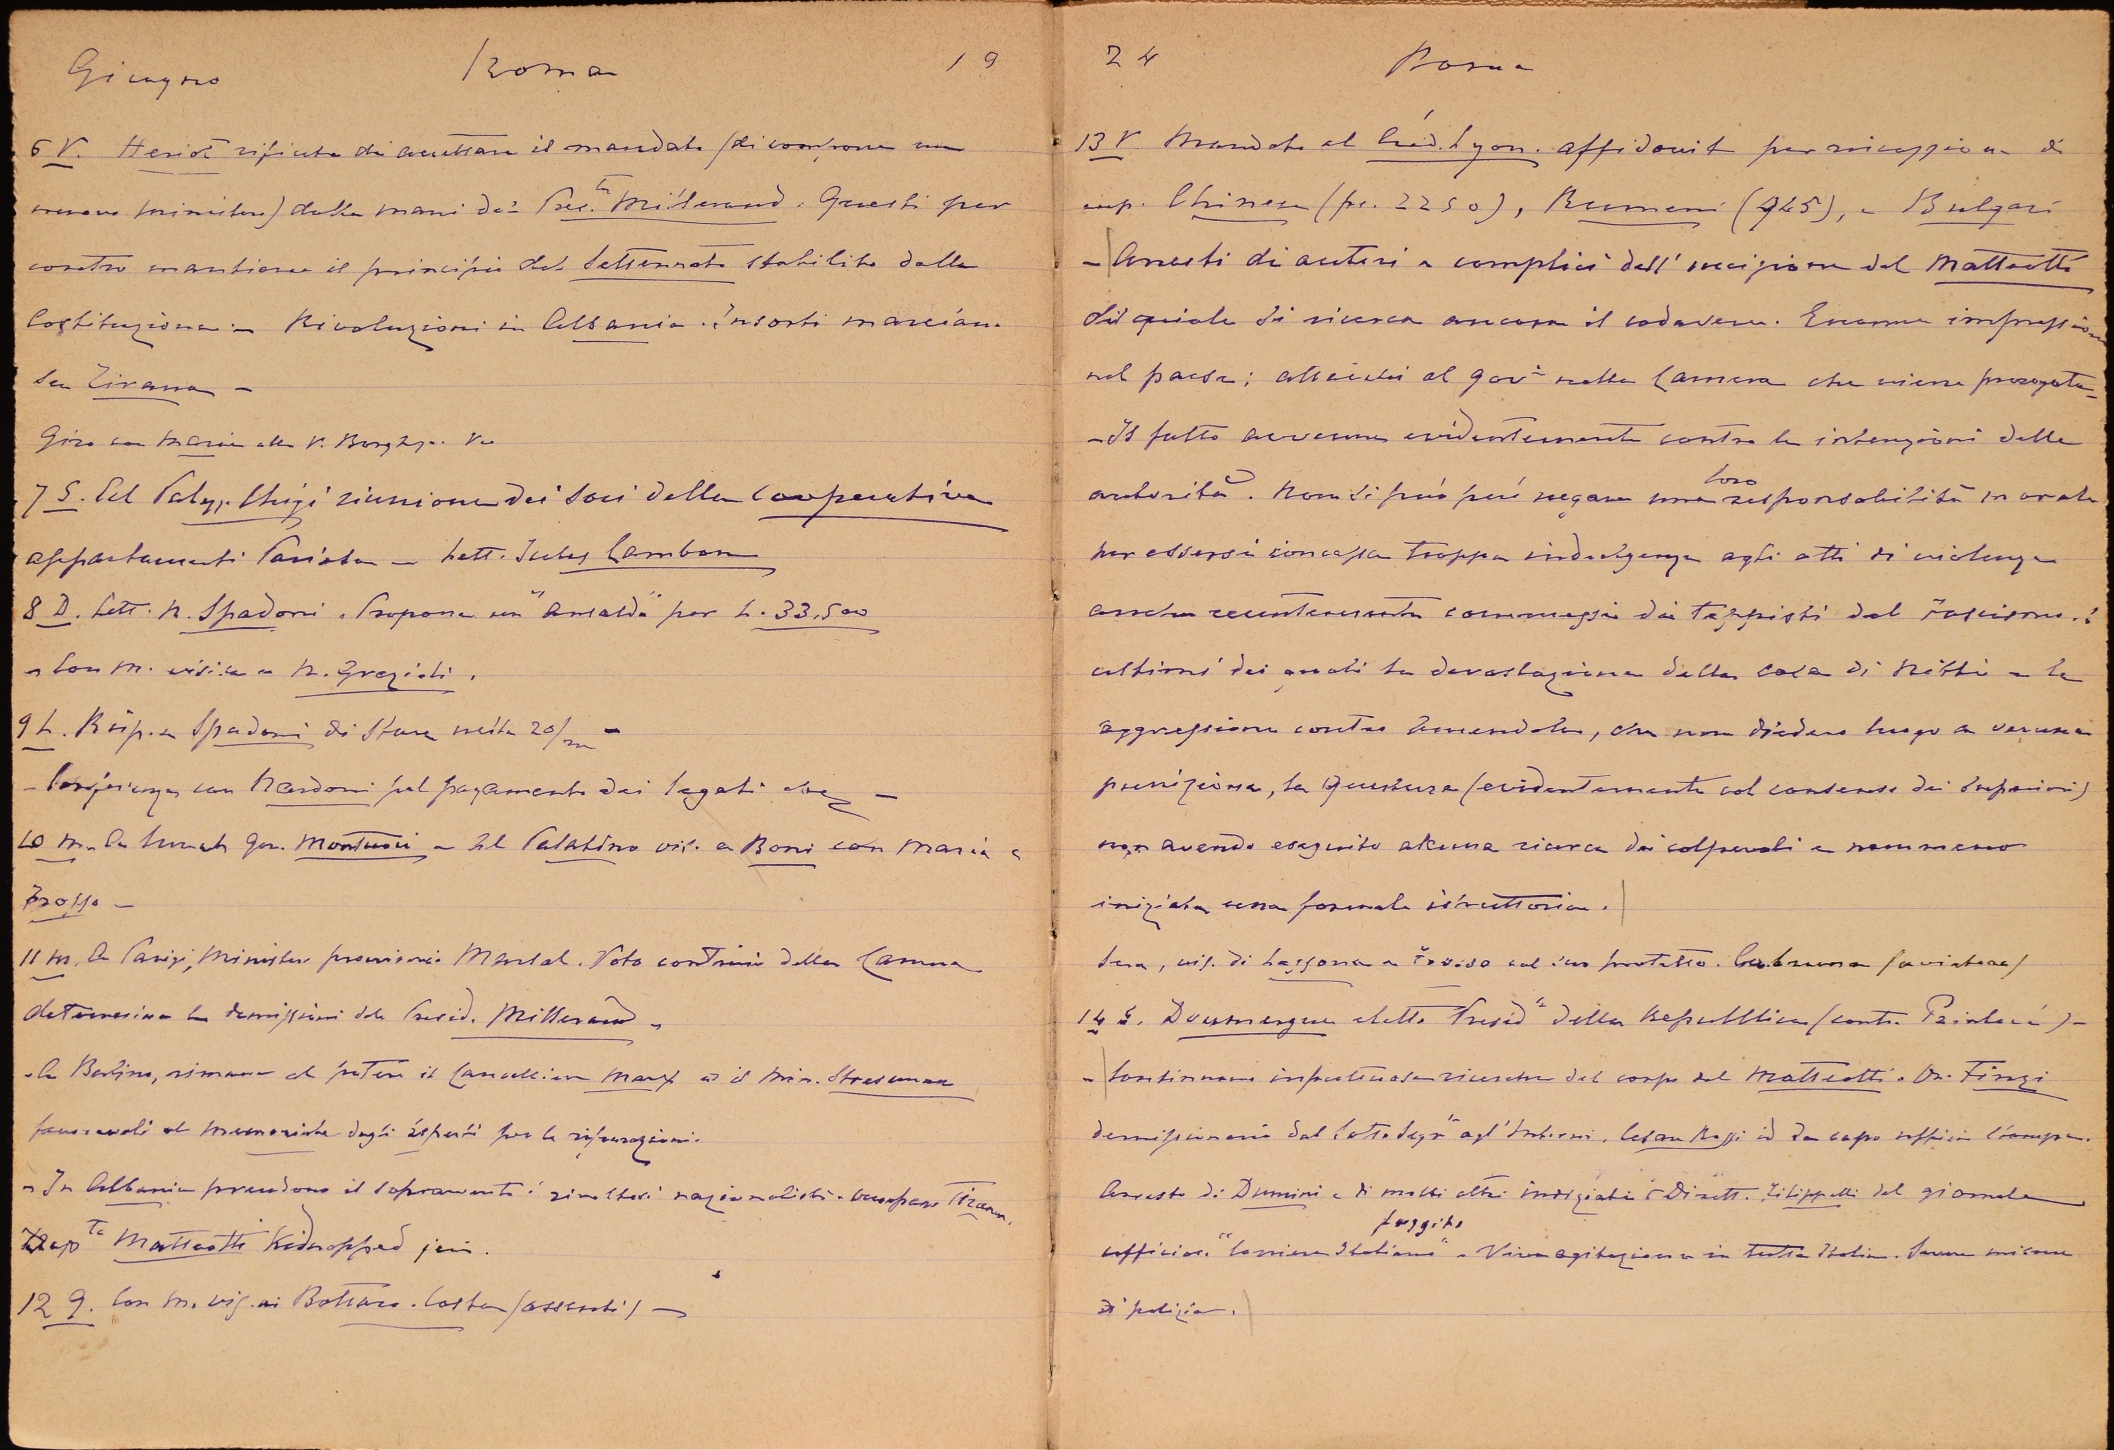 Giugno Roma 19
6 V. Heriot rifiuta di accettare il mandato (di comporre un
nuovo ministero) dalle mani del Pres.te Millerand. Questi per
contro mantiene il principio del settennato stabilito dalla
Costituzione – Rivoluzioni in Albania. insorti marciano
su Tirana –
Giro con Maria alla V. Borghese.
7 S. Al Palazz. Chigi riunione dei soci della Cooperativa
appartamenti Pariola – Lett. Jules Cambon
8 D. Lett. N. Spadoni. Propone un "Ansaldo" per L. 33.500
– Con M. visita a N. Grazioli.
9 L. Risp. a Spadoni di stare nelle 20/m –
– Conferenza con Nardoni pel pagamento dei legati
10 M. a lunch Gen. Montuori – Al Palatino vis. a Boni con Maria e
11 M. A Parigi, Ministero provvisorio Marsal. Voto contrario della Camera
determina le dimissioni del Presid. Millerand –
– A Berlino, rimane al potere il Cancelliere Marx ed il Min. Stresemann
favorevoli al memoriale degli esperti per le riparazioni.
– In Albania prendono il sopravvento i rivoltosi nazionalisti. occupano Tirana.
Dep.to Matteotti Kidnapped jeri.
12 G. Con M. vis. ai Bottaro-Costa (assenti) –
24 Roma
13 V. Mandato al Créd. Lyon. affidavit per riscossione di
cup. Chinesi (fr. 2250), Rumeni (945), e Bulgari
– Arresti di autori e complici dell'uccisione del Matteotti
del quale si ricerca ancora il cadavere. Enorme impressione
nel paese; attacchi al gov.o nella Camera che viene prorogata –
– Il fatto avvenne evidentemente contro le intenzioni delle
autorità. Non si può però negare una loro responsabilità morale
per essersi concessa troppa indulgenza agli atti di violenza
anche recentemente commessi dai teppisti del Fascismo. i
ultimi dei quali la devastazione della casa di Nitti e la
aggressione contro Amendola, che non diedero luogo a veruna
punizione, la Questura (evidentemente col consenso dei superiori)
non avendo eseguito alcuna ricerca dei colpevoli e nemmeno
iniziata una formale istruttoria.
Sera, vis. di col suo protetto. (aviatore)
14 S. Doumergue eletto Presid.te della Repubblica (contro Painlevé) –
– Continuano infruttuose ricerche del corpo del Matteotti. On. Finzi
dimissionario dal Sotto Segr.o agl'Interni. Cesare Rossi id da capo ufficio stampa.
Arresto di Dumini e di molti altri indiziati Dirett. Filippelli del giornale
ufficioso "Corriere Italiano" fuggito – Viva agitazione in tutta Italia. Severe misure
di polizia.